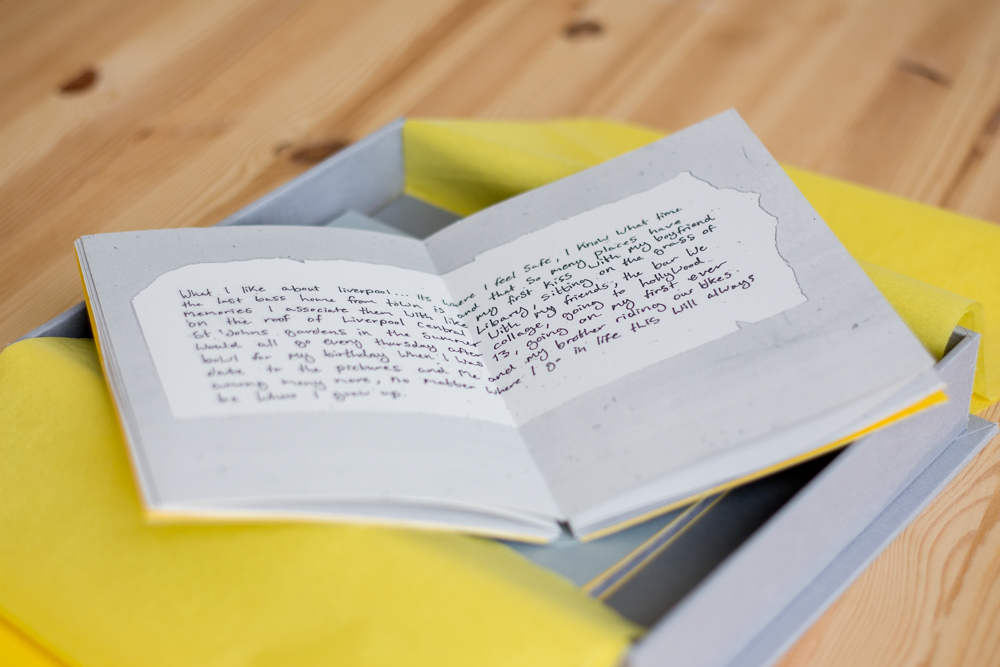 What I like about liverpool... Its where I feel safe, I know what time
the last bass home from town is and that so meny places have
memories I associate them with like my first kiss with my boyfriend
on the roof of Liverpool central Libary, sitting on the grass of
st Johns gardens in the summer with my friends, the bar we
would all go every thursday after collage, going to hollywood
bowl for my birthday when I was 13, going on my first ever
date to the pictures and me and my brother riding our bkes.
among meny more, no matter where I go in life this will always
be where I grew up.